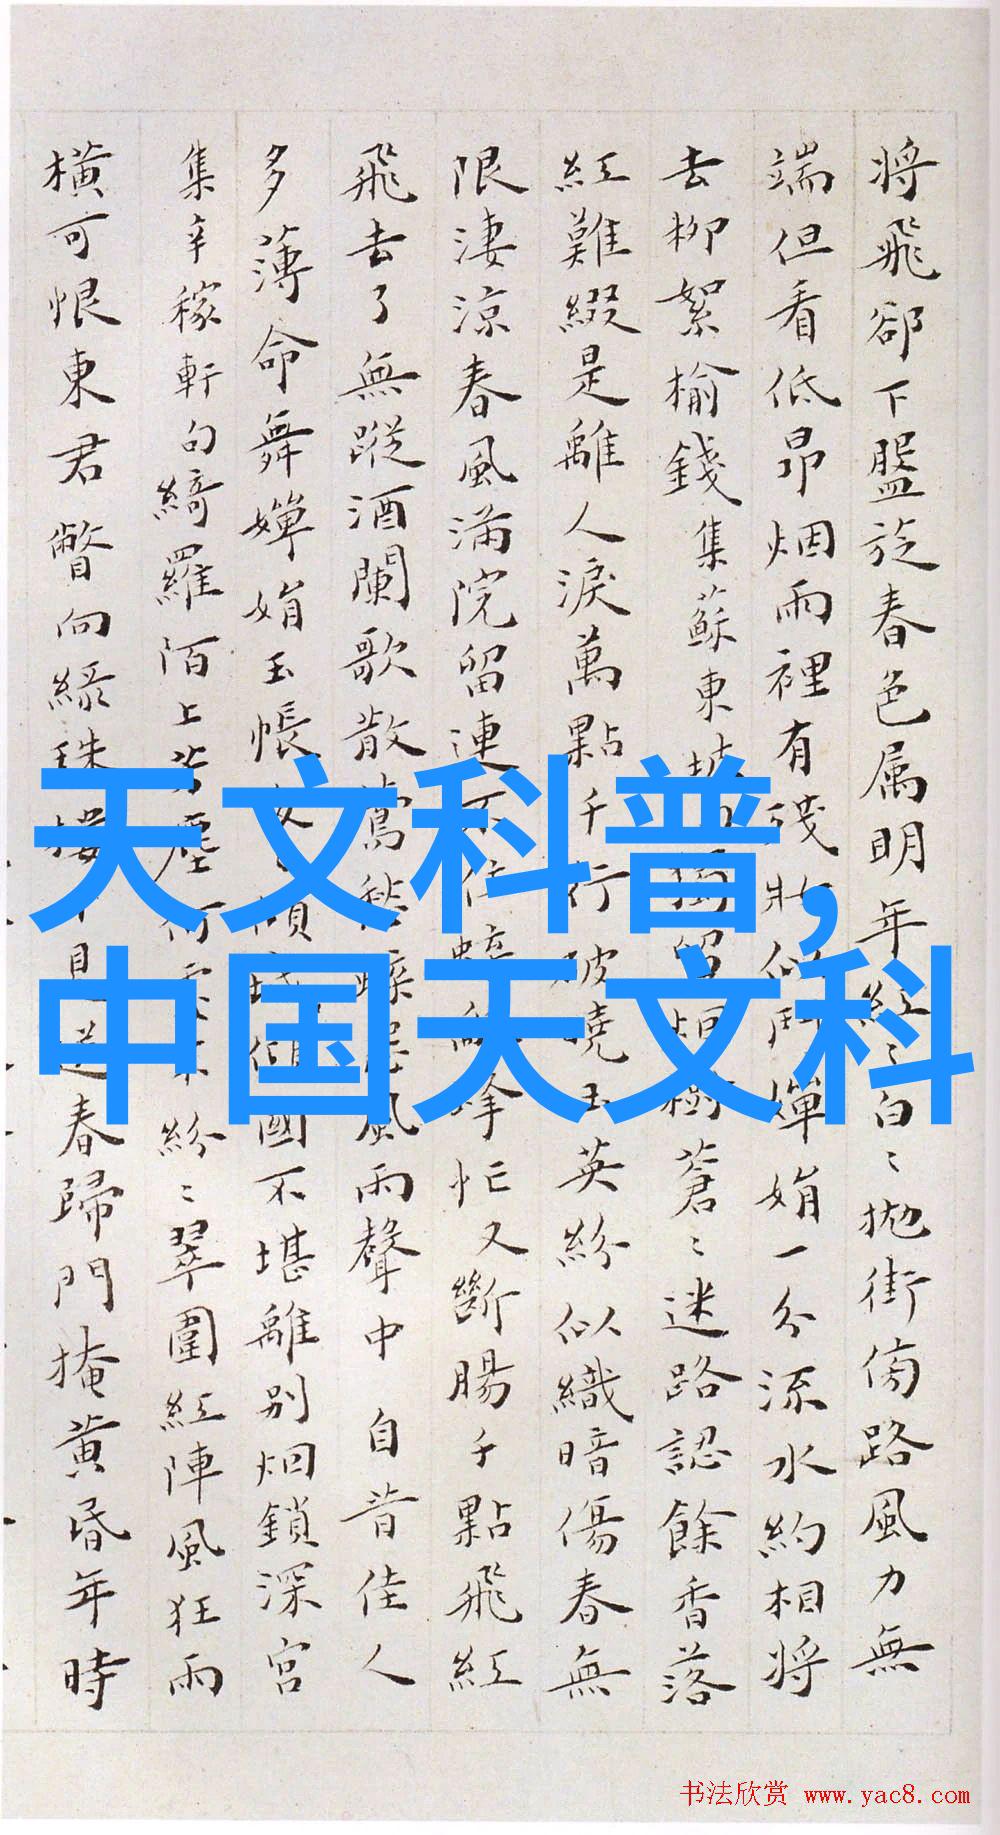 将飛卻下盤旋春色属明年紅〻白〻拋街傍路風力無
端但看低昂烟雨裡有殘妝似鬥嬋娟一分流水約相将
去柳絮榆錢集蘇東坡句 樹蒼〻迷路認餘香落
紅難綴是離人淚萬點千行破曉玉英紛似織暗傷春無
限淒涼春風滿院留連不住蜂忙又斷腸千點飛紅
飛去了無蹤酒闌歌散鶯愁蝶怨風雨聲中 自昔佳人
多薄命舞嬋娟玉帳 傾城傾國不堪離別烟鎖深宮
集辛稼軒句綺羅陌上芳塵 紛〻翠圍紅陣風狂雨
橫可恨東君瞥向綠珠樓 春歸門掩黃昏年時
天文科普，
中国天文科
书法欣赏 www.yac8.com